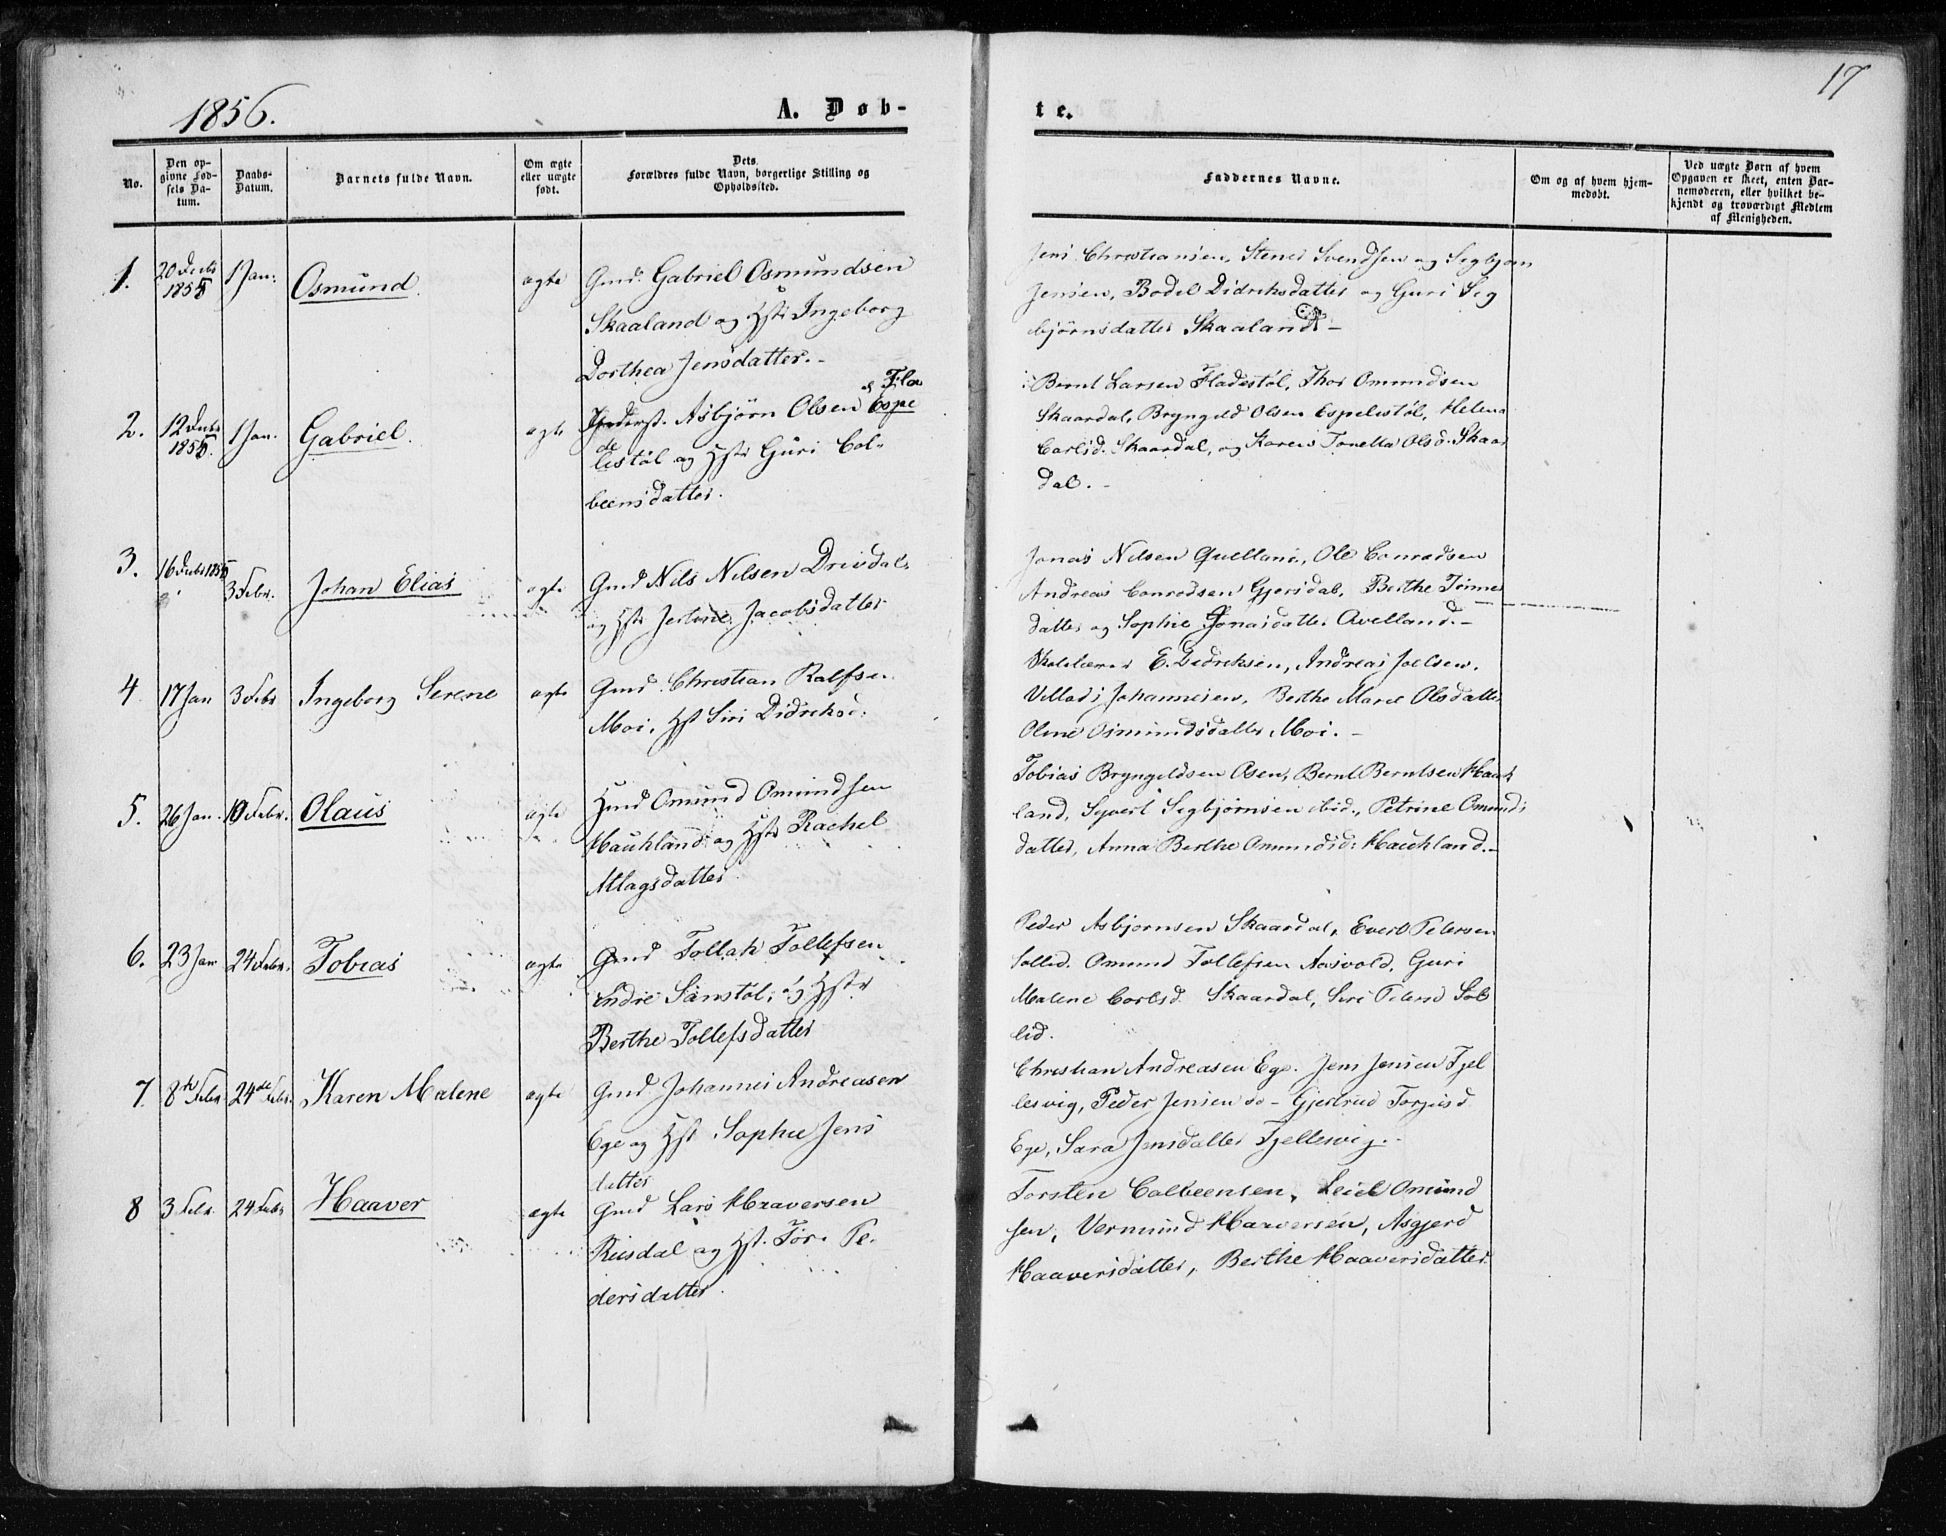 1856.
A. Døb-
te.
17
No.
Den op-
givne Fød-
sels Da-
tum.
Daabs-
Datum.
Barnets fulde Navn.
Om ægte
eller uægte
født.
Dets
Forældres fulde Navn, borgerlige Stilling og
Opholdssted.
Faddernes Navne.
Om og af hvem hjem-
medøbt.
Ved uægte Børn af hvem
Opgaven er skeet, enten Bar-
nemoderen, eller hvilket be-
kjendt og troværdigt Medlem
af Menigheden.
1.
20 Decbr
1855
1 Jan:
Osmund.
ægte
Gmd. Gabriel Osmundsen
Skaaland og Hstr Ingeborg
Dorthea Jensdatter.-
Jens Christiansen, Svendsen og Segbjørn
Jensen, Bodel Didriksdatter og Guri Seg
bjørnsdatter Skaaland-
2.
12 Decbr
1855.
1 Jan.
Gabriel.
ægte
Asbjørn Olsen Espe
Fla
de
lestøl og Hstr Guri Col-
beensdatter.
Bernt Larsen Fladestøl, Thor Omundsen
Skaardal, Bryngeld Olsen Espelestøl, Helena
Carlsd. Skaardal, og Karen Tonetta Olsd. Skaar
dal.-
3.
16 Decbr 1855
3 Febr.
Johan Elias
ægte
Gmd Nils Nilsen Drivdal
og Hstr Jacobsdatter
Jonas Nilsen Qvelland, Ole Conradsen
Andreas Conradsen Gjersdal, Berthe Tønnes
datter og Sophie Jonasdatter Qvelland.-
4
17 Jan
3 Febr
Ingeborg Serene
ægte
Gmd. Christian Ralfsen
Moi, Hst Siri Didriksd:
Skolelærer E. Didriksen, Andreas Joelsen,
Villads Johannesen, Berthe Marie Olsdatter
Oline Osmundsdatter Moi.-
5.
26 Jan.
10 Febr.
Olaus
ægte
Omund Omundsen
Haukland og Hstr Rachel
Atlagsdatter
Tobias Bryngeldsen Osen, Bernt Berntsen Hauk
land, Syvert Segbjørnsen ibid., Petrine Omunds
datter, Anna Berthe Omundsd: Haukland.-
6.
23 Jan
24 Febr.
Tobias
ægte
Gmd Tollak Tollefsen
Indre Sanstøl, og Hstr
Berthe Tollefsdatter
Peder Asbjørnsen Skaardal, Evert Petersen
Sollid. Omund Tollefsen Aasvold, Guri
Malene Carlsd. Skaardal, Siri Petersd Sol
lid.
7.
8de Febr
24de Febr.
Karen Malene
ægte
Gmd. Johannes Andreasen
Ege og Hst. Sophie Jens
datter
Christian Andreasen Ege. Jens Jensen Fjel
lesvig, Peder Jensen do- Gjertrud Torjusd
Ege, Sara Jensdatter Fjellesvig.-
8
3 Febr.
24 Febr
Haaver
ægte
Gmd Lars Haaversen
Riisdal og Hst. Tor. Pe-
dersdatter.
Torsten Colbeensen, Leiel Omund
sen, Vermund Haaversen, Asgjerd
Haaversdatter, Berthe Haaversdatter.